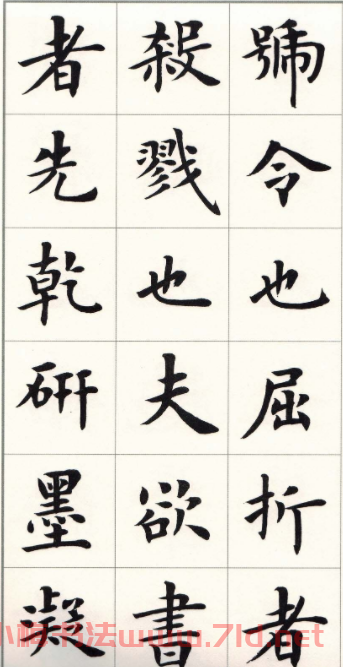 號令也屈折者
殺戮也夫欲書
者先乾研墨凝
小楷书法www.7ld.net